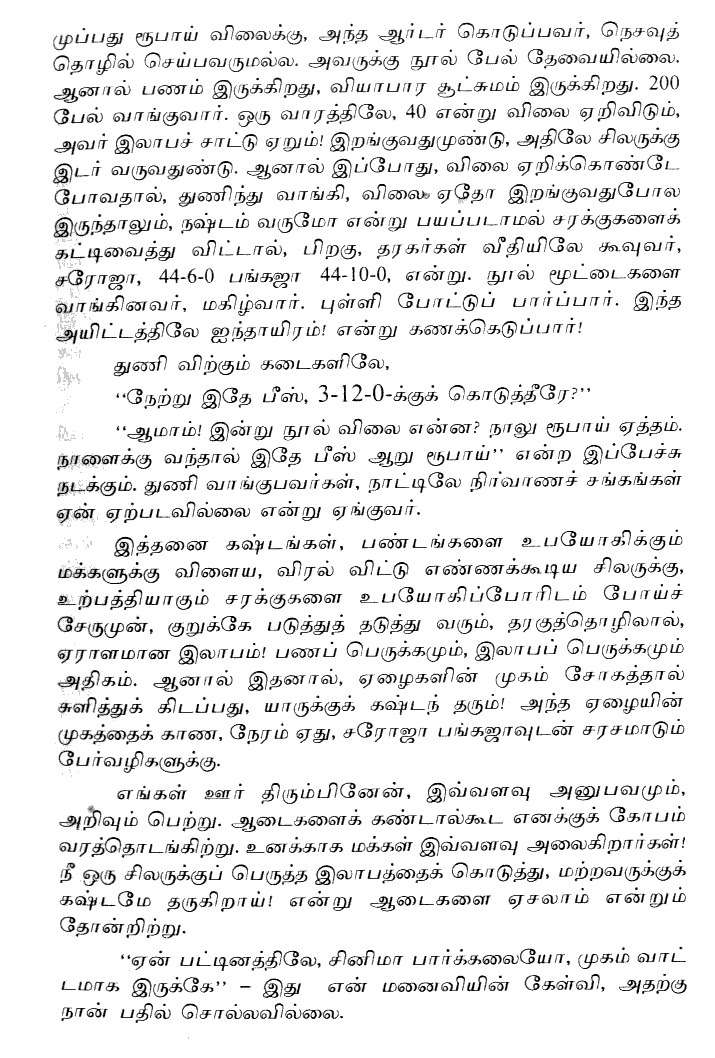 முப்பது ரூபாய் விலைக்கு, அந்த ஆர்டர் கொடுப்பவர், நெசவுத்
தொழில் செய்பவருமல்ல. அவருக்கு நூல் பேல் தேவையில்லை.
ஆனால் பணம் இருக்கிறது, வியாபார சூட்சுமம் இருக்கிறது. 200
பேல் வாங்குவார். ஒரு வாரத்திலே, 40 என்று விலை ஏறிவிடும்,
அவர் இலாபச் சாட்டு ஏறும்! இறங்குவதுமுண்டு, அதிலே சிலருக்கு
இடர் வருவதுண்டு. ஆனால் இப்போது, விலை ஏறிக்கொண்டே
போவதால், துணிந்து வாங்கி, விலை ஏதோ இறங்குவதுபோல
இருந்தாலும், நஷ்டம் வருமோ என்று பயப்படாமல் சரக்குகளைக்
கட்டிவைத்து விட்டால், பிறகு, தரகர்கள் வீதியிலே கூவுவர்,
சரோஜா, 44-6-0 பங்கஜா 44-10-0, என்று. நூல் மூட்டைகளை
வாங்கினவர், மகிழ்வார். புள்ளி போட்டுப் பார்ப்பார். இந்த
அயிட்டத்திலே ஐந்தாயிரம்! என்று கணக்கெடுப்பார்!
துணி விற்கும் கடைகளிலே,
“நேற்று இதே பீஸ், 3-12-0-க்குக் கொடுத்தீரே?”
“ஆமாம்! இன்று நூல் விலை என்ன? நாலு ரூபாய் ஏத்தம்.
நாளைக்கு வந்தால் இதே பீஸ் ஆறு ரூபாய்” என்ற இப்பேச்சு
நடக்கும். துணி வாங்குபவர்கள், நாட்டிலே நிர்வாணச் சங்கங்கள்
ஏன் ஏற்படவில்லை என்று ஏங்குவர்.
இத்தனை கஷ்டங்கள், பண்டங்களை உபயோகிக்கும்
மக்களுக்கு விளைய, விரல் விட்டு எண்ணக்கூடிய சிலருக்கு,
உற்பத்தியாகும் சரக்குகளை உபயோகிப்போரிடம் போய்ச்
சேருமுன், குறுக்கே படுத்துத் தடுத்து வரும், தரகுத்தொழிலால்,
ஏராளமான இலாபம்! பணப் பெருக்கமும், இலாபப் பெருக்கமும்
அதிகம். ஆனால் இதனால், ஏழைகளின் முகம் சோகத்தால்
சுளித்துக் கிடப்பது, யாருக்குக் கஷ்டந் தரும்! அந்த ஏழையின்
முகத்தைக் காண, நேரம் ஏது, சரோஜா பங்கஜாவுடன் சரசமாடும்
பேர்வழிகளுக்கு.
எங்கள் ஊர் திரும்பினேன், இவ்வளவு அனுபவமும்,
அறிவும் பெற்று. ஆடைகளைக் கண்டால்கூட எனக்குக் கோபம்
வரத்தொடங்கிற்று. உனக்காக மக்கள் இவ்வளவு அலைகிறார்கள்!
நீ ஒரு சிலருக்குப் பெருத்த இலாபத்தைக் கொடுத்து, மற்றவருக்குக்
கஷ்டமே தருகிறாய்! என்று ஆடைகளை ஏசலாம் என்றும்
தோன்றிற்று.
“ஏன் பட்டினத்திலே, சினிமா பார்க்கலையோ, முகம் வாட்
டமாக இருக்கே” – இது என் மனைவியின் கேள்வி, அதற்கு
நான் பதில் சொல்லவில்லை.